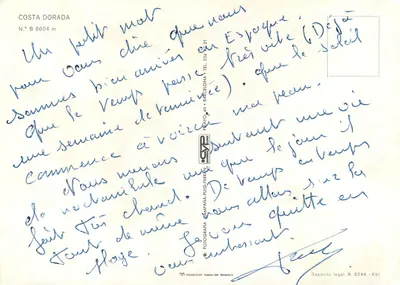 COSTA DORADA
N.º B 6604 m
Un petit mot
pour vous dire que nous
sommes bien arrivés en Espagne.
Que le temps passe très vite (Déjà
une semaine de vacances). Que le soleil
commence à ma peau.
Nous menons une vie
de noctambule vu que le jour il
fait très chaud. De temps en temps
tout de même nous allons sur la
plage. Je vous quitte en
vous embrassant.
Depósito legal B.